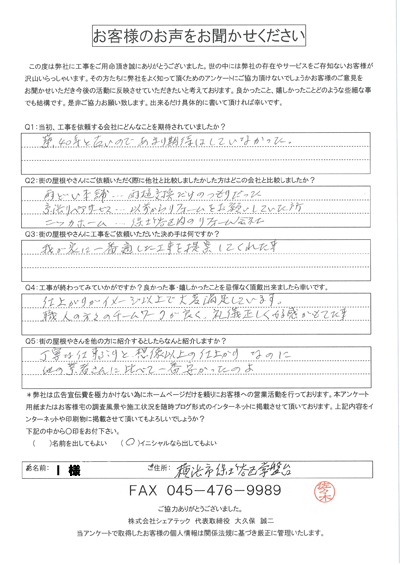 お客様のお声をお聞かせください
この度は弊社に工事をご用命頂き誠にありがとうございました。世の中には弊社の存在やサービスをご存知ないお客様が
沢山いらっしゃいます。その方たちに弊社をよく知って頂くためのアンケートにご協力頂けないでしょうかお客様のご意見を
お聞かせいただき今後の活動に反映させていただきたいと考えております。良かったこと、嬉しかったことどのような些細な事
でも結構です。是非ご協力お願い致します。出来るだけ具体的に書いて頂ければ幸いです。
Q1:当初、工事を依頼する会社にどんなことを期待されていましたか?
築40年と古いので あまり期待はしていなかった。
Q2:街の屋根やさんにご依頼いただく際に他社と比較しましたかした方はどこの会社と比較しましたか?
雨どい本舗…雨樋交換だけのつもりだった
以前からリフォームをお願いしていた所
ニッカホーム…保土ケ谷区内のリフォーム会社
Q3:街の屋根やさんに工事をご依頼いただいた決め手は何ですか?
我が家に一番適した工事を提案してくれた事
Q4:工事が終わってみていかがですか?良かった事・嬉しかったことを忌憚なく頂戴出来ましたら幸いです。
仕上がりがイメージ以上で大変満足しています。
職人の方々のチームワークが良く、礼儀正しく好感がもてた事
Q5:街の屋根やさんを他の方に紹介するとしたらなんと紹介しますか?
丁寧な仕事ぶりと想像以上の仕上がり なのに
他の業者さんに比べて一番安かったのよ
*弊社は広告宣伝費を極力かけない為にホームページだけを頼りにお客様への営業活動を行っております。本アンケート
用紙またはお客様宅の調査風景や施工状況を随時ブログ形式のインターネットに掲載させて頂いております。上記内容をイ
ンターネットや印刷物に掲載させて頂いてもよろしいでしょうか?
下記の中から〇印をお付け下さい。
( )名前を出してもよい (〇)イニシャルなら出してもよい
お名前: I 様 ご住所: 横浜市保土ケ谷区常盤台
FAX 045-476-9989
佐々木
ご協力ありがとうございました。
株式会社シェアテック 代表取締役 大久保 誠二
当アンケートで取得したお客様の個人情報は関係法規に基づき厳正に管理いたします。